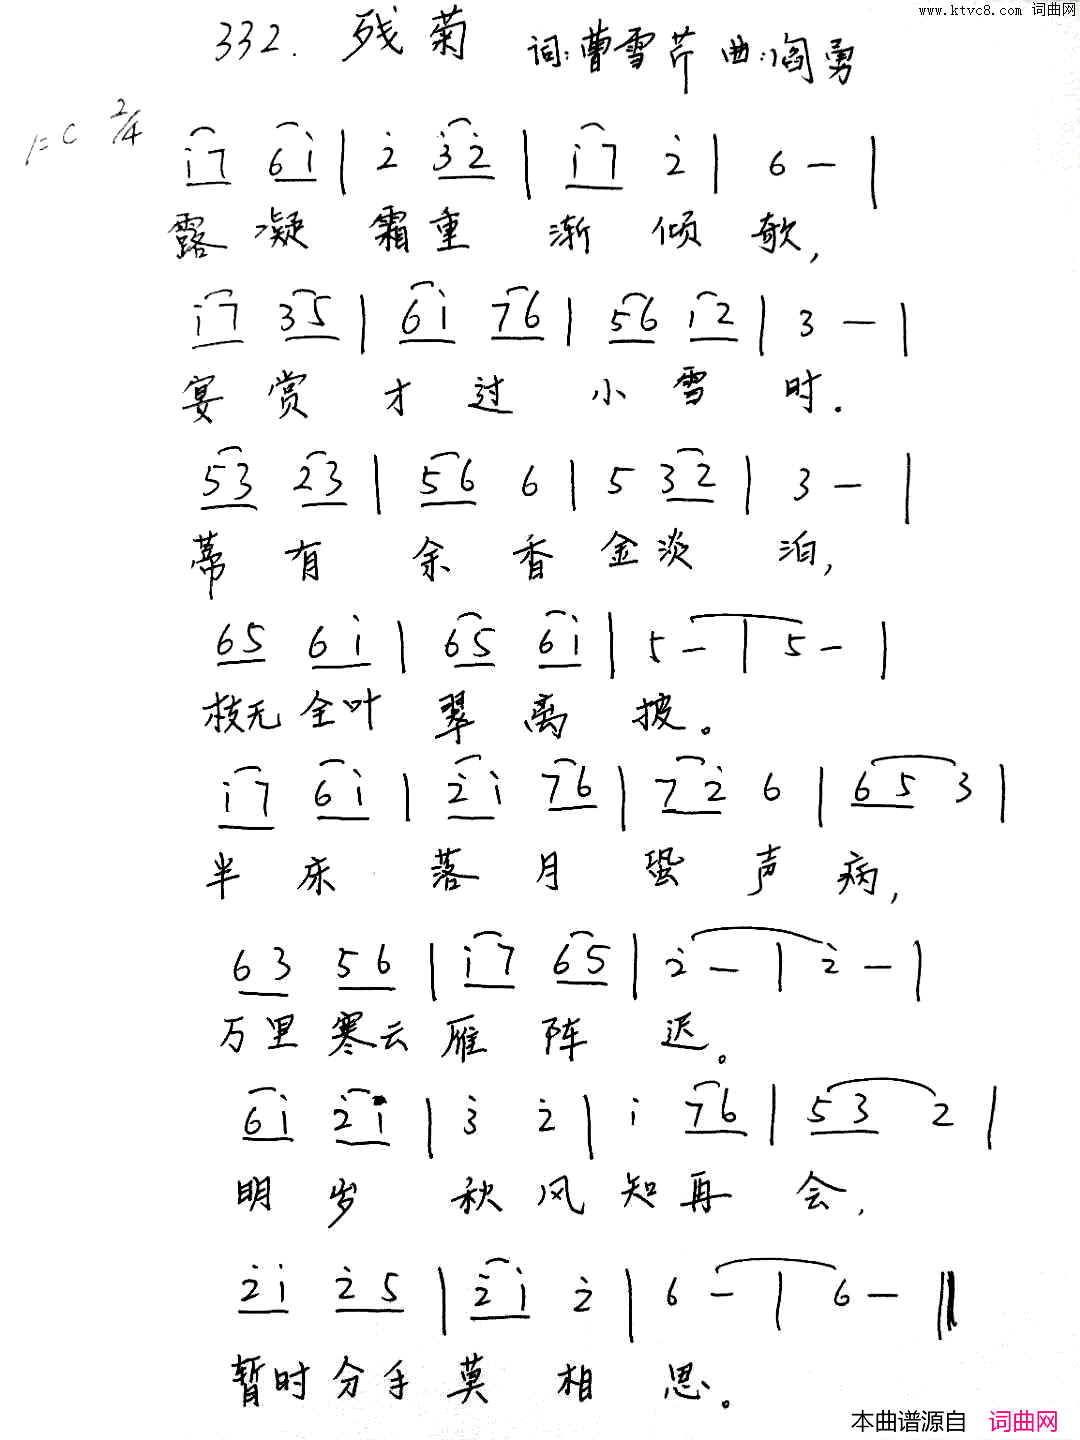 www.ktvc8.com 词曲网
332. 残菊 词:曹雪芹 曲:阎勇
1=C 2/4
i7 6i | 2 32 | i7 2 | 6 — |
露凝霜重渐倾欹,
i7 35 | 6i 76 | 56 i2 | 3 — |
宴赏才过小雪时.
53 23 | 56 6 | 5 32 | 3 — |
蒂有余香金淡泊,
65 6i | 65 6i | 5 — | 5 — |
枝无全叶翠离披。
i7 6i | 2i 76 | 72 6 | 65 3 |
半床落月蛩声病,
63 56 | i7 65 | 2 — | 2 — |
万里寒云雁阵迟。
6i 2i | 3 2 | i 76 | 53 2 |
明岁秋风知再会,
2i 25 | 2i 2 | 6 — | 6 — ||
暂时分手莫相思。
本曲谱源自 词曲网